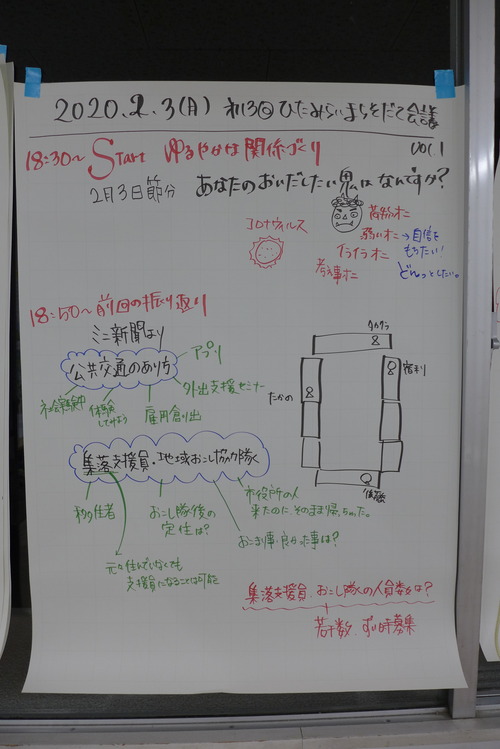 2020.2.3(月) 第3回 ひたみらいまちそだて会議
vol.1
18:30～ START ゆるやかな関係づくり
2月3日節分 あなたのおいだしたい鬼はなんですか?
コロナウィルス
弱いオニ→自信をもちたい!
イライラオニ
考え事オニ
どんっとしたい。
18:50～前回の振り返り
ミニ新聞より
公共交通のあり方
アプリ
外出支援セミナー
社会実験中
体験してみよう
雇用創り出
たかの
集落支援員・地域おこし協力隊
移住者
おこし隊後の定住は?
市役所の人
来たのに、そのまま帰っちゃった。
おこまり事・良かった事は?
元々住んでいなくても
支援員になることは可能
集落支援員、おこし隊の人員数は?
若干数、ずい時募集